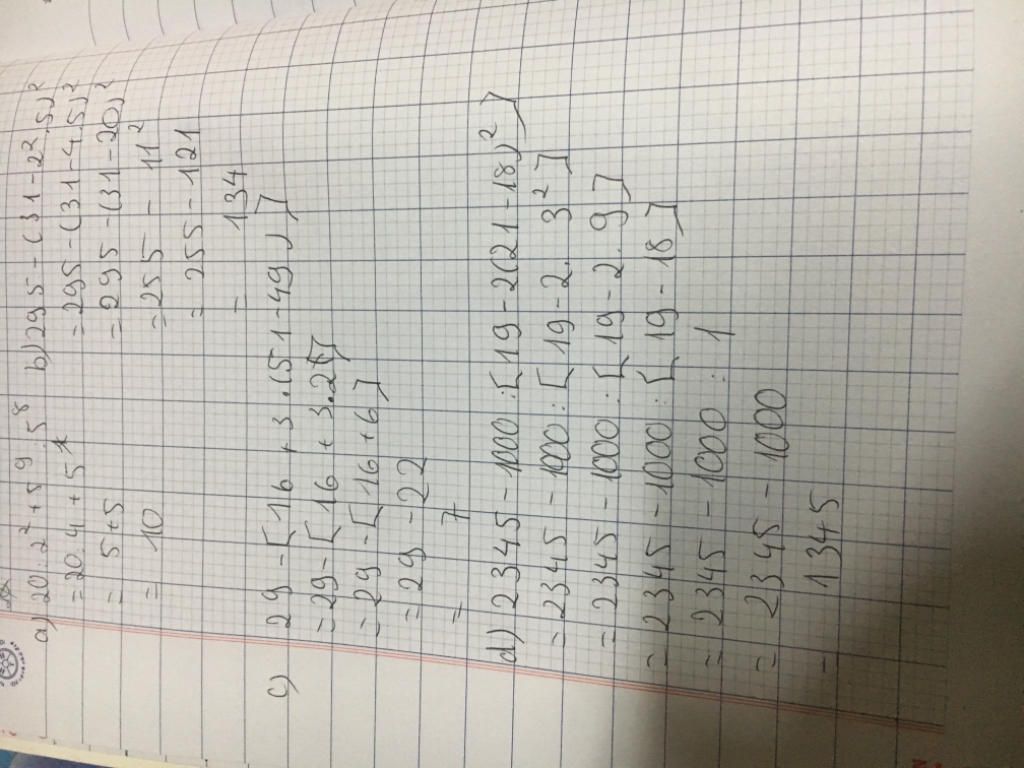 a) 20 : 2² + 5⁹ : 5⁸
= 20 : 4 + 5
= 5 + 5
= 10
b) 295 - (31 - 2² . 5)²
= 295 - (31 - 4 . 5)²
= 295 - (31 - 20)²
= 255 - 11²
= 255 - 121
= 134
c) 29 - [16 + 3 . (51 - 49)]
= 29 - [16 + 3 . 2]
= 29 - [16 + 6]
= 29 - 22
= 7
d) 2345 - 1000 : [19 - 2(21 - 18)²]
= 2345 - 1000 : [19 - 2 . 3²]
= 2345 - 1000 : [19 - 2 . 9]
= 2345 - 1000 : [19 - 18]
= 2345 - 1000 : 1
= 2345 - 1000
= 1345